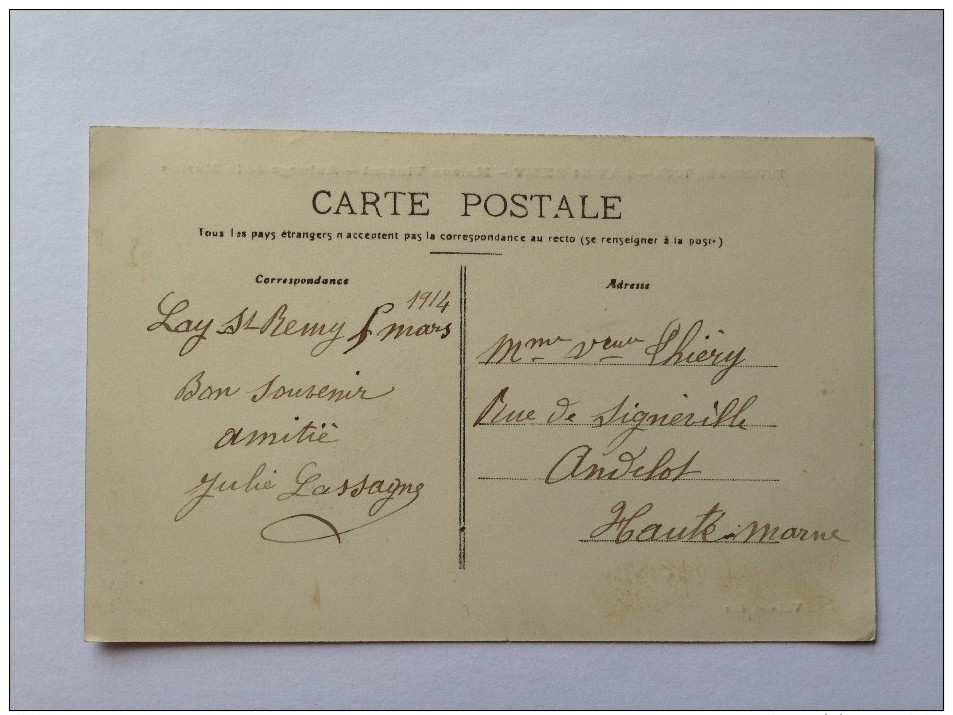 CARTE POSTALE
Tous les pays étrangers n'acceptent pas la correspondance au recto (se renseigner à la poste)
Correspondance
1914
Lay St Remy mars
Bon Souvenir
amitié
Julie Lassagne
Adresse
Mme Veuve Thiéry
Rue de Signéville
Andelot
Haute-Marne